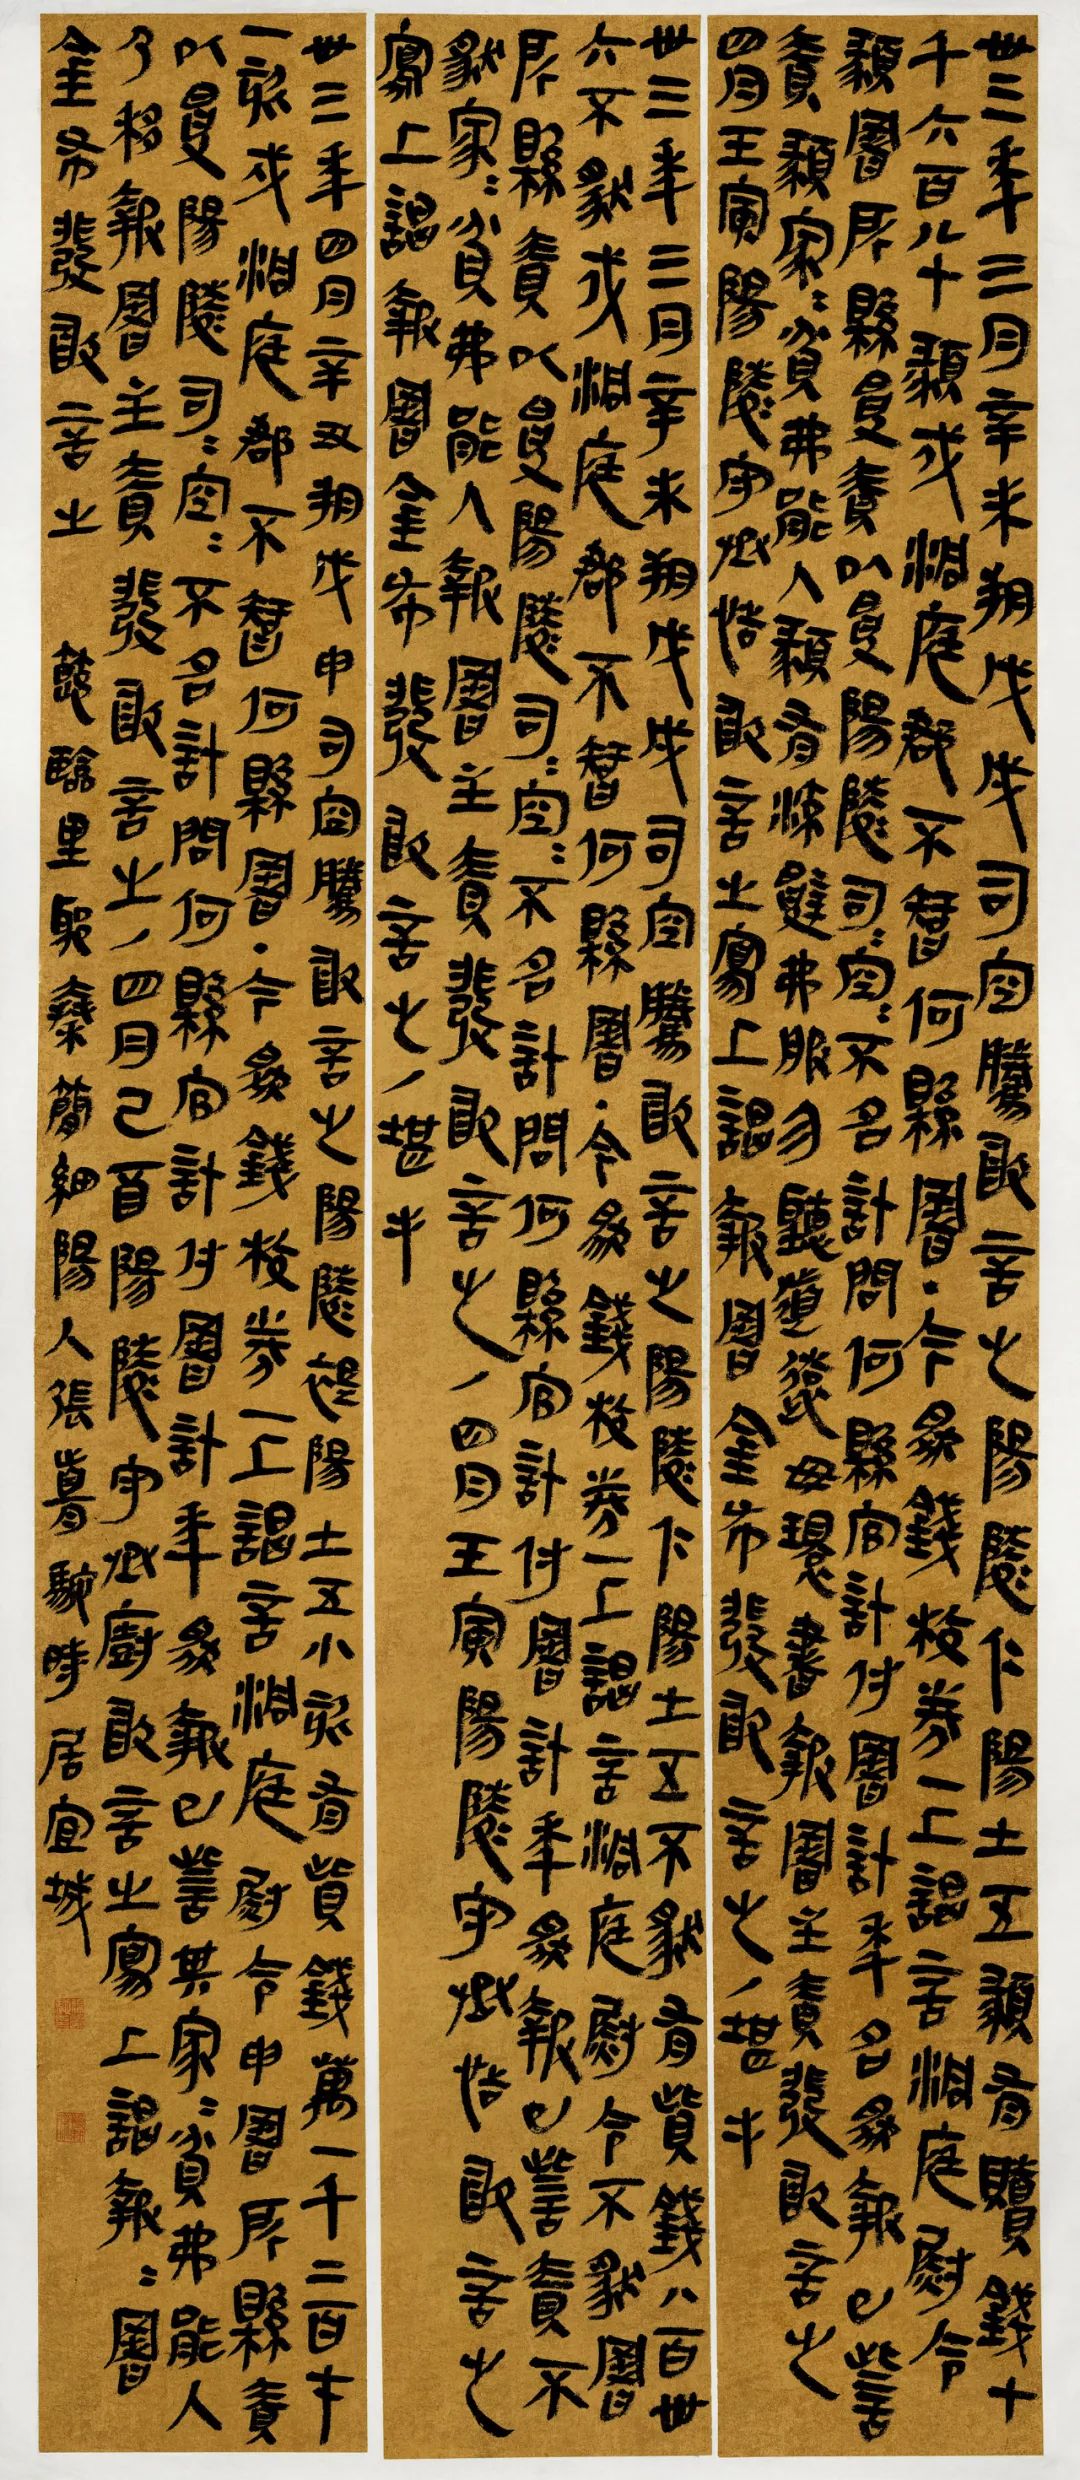 卅三年三月辛未朔戊戌司空騰敢言之陽陵仁陽士五顤有贖錢七
千六百八十顤戍洞庭郡不智何縣署·今為錢校券一上謁言洞庭尉令
顤署所縣受責以受陽陵司〓空〓不名計問何縣官計付署計年名為報已訾
責顤家〓貧弗能入顤有流辟弗服勿聽道遠毋環書報署主責發敢言之
四月壬寅陽陵守丞恬敢言之寫上謁報署金布發敢言之/堪手
卅三年三月辛未朔戊戌司空騰敢言之陽陵仁陽士五不豺有貲錢八百卅
六不豺戍洞庭郡不智何縣署·今為錢校券一上謁言洞庭尉令不豺署
所縣責以受陽陵司〓空〓不名計問何縣官計付署計年為報已訾責不
豺家〓貧弗能入報署主責發敢言之/四月壬寅陽陵守丞恬敢言之
寫上謁報署金布發敢言之/堪手
卅三年四月辛丑朔戊申司空騰敢言之陽陵褆陽士五小欬有貲錢萬一千二百七
一欬戍洞庭郡不智何縣署·今為錢校券一上謁言洞庭尉令申署所縣責
以受陽陵司〓空〓不名計問何縣官計付署計年為報已訾其家〓貧弗能入
乃移報署主責發敢言之/四月己酉陽陵守丞廚敢言之寫上謁報〓署
金布發敢言之 節臨里耶秦簡細陽人張時居宜城